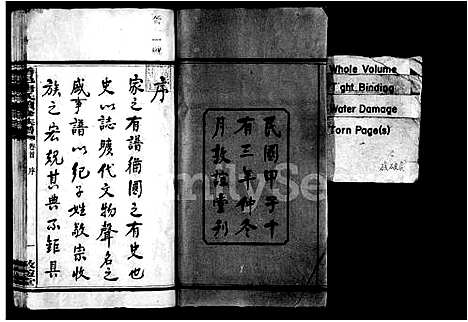 民國甲子十
有三年仲冬
月敦睦重刋
序
家之有譜猶國之有史也
史以誌曠代文物聲名之
盛事譜以紀子姓敬宗收
族之宏規其典不鉅具
卷首 序
一
Whole Volume
Tight Binding
Water Damage
Torn Page(s)